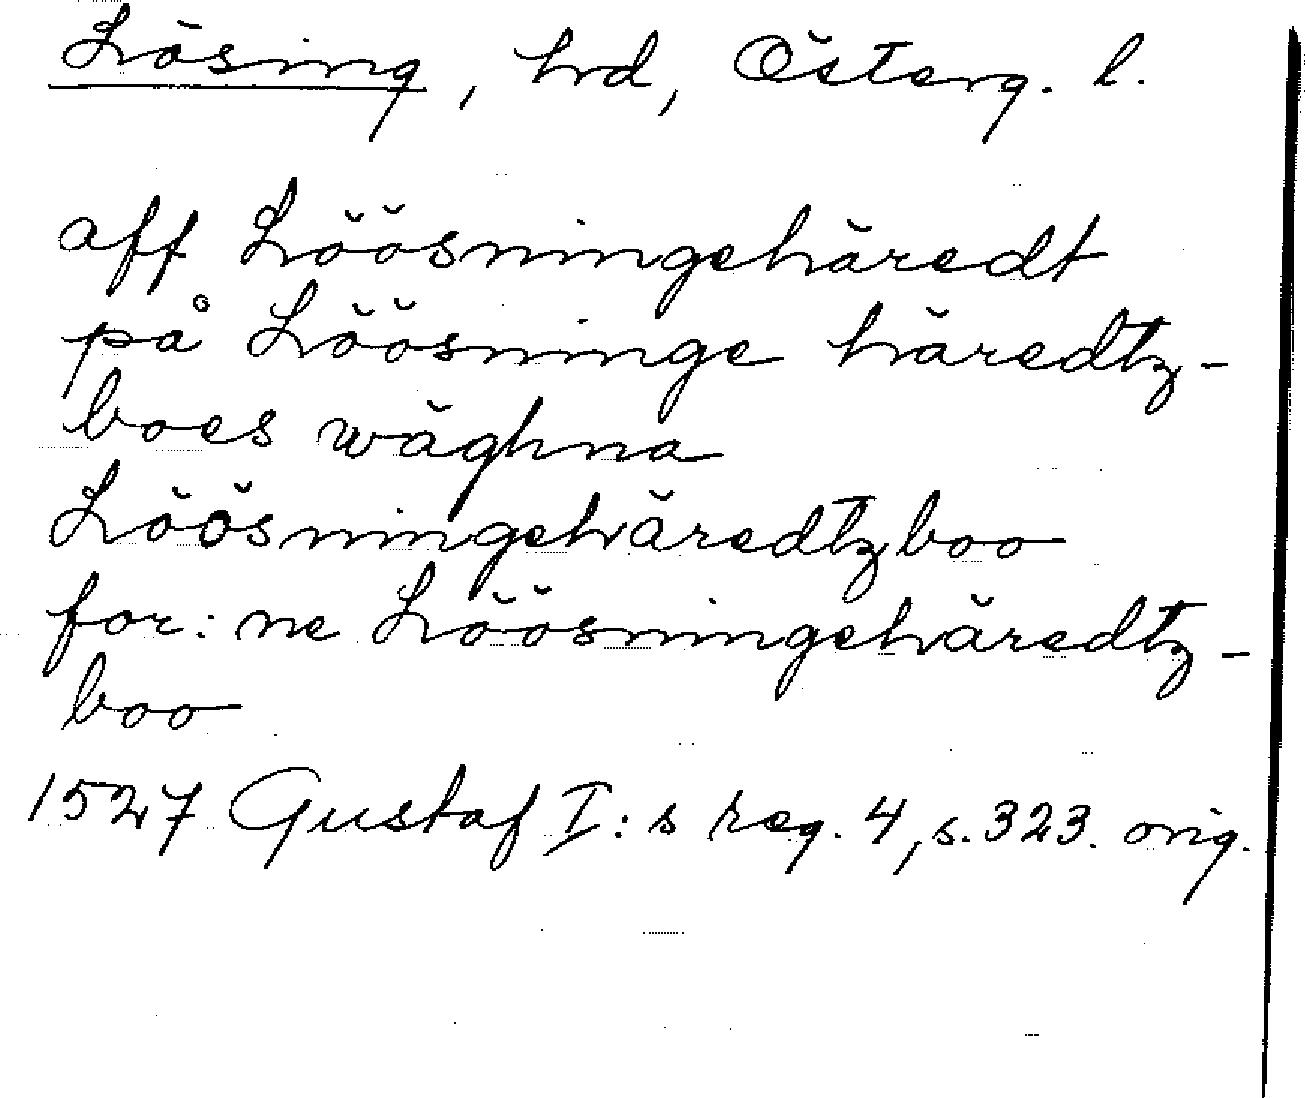 Lösing, hrd, Österg. l.
aff Löösningehäredt
på Löösninge häredtz-
boes wäghna
Löösningehäredtzboo
for: ne Löösningehäredtz-
boo
1527 Gustaf I:s reg. 4, s. 323. orig.